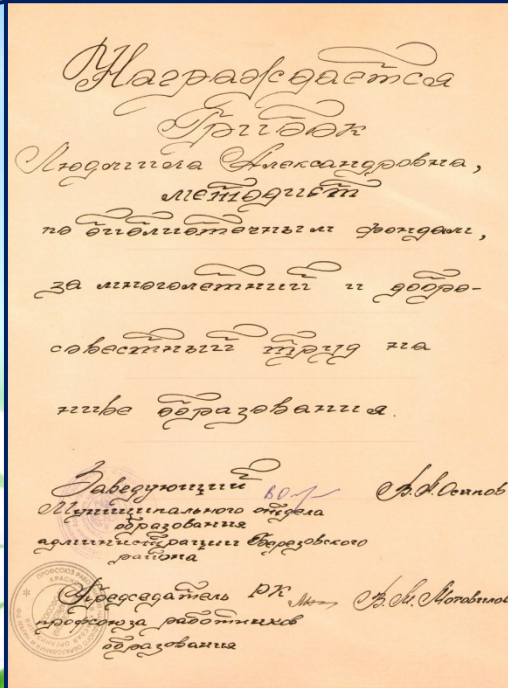 Награждается
Грибок
Людмила Александровна,
методист
по библиотечным фондам,
за многолетний и добро-
совестный труд на
ниве образования.
Заведующий В.А. Осипов
Муниципального отдела
образования
администрации Березовского
района
Председатель РК В.М. Мотовилов
профсоюза работников
образования